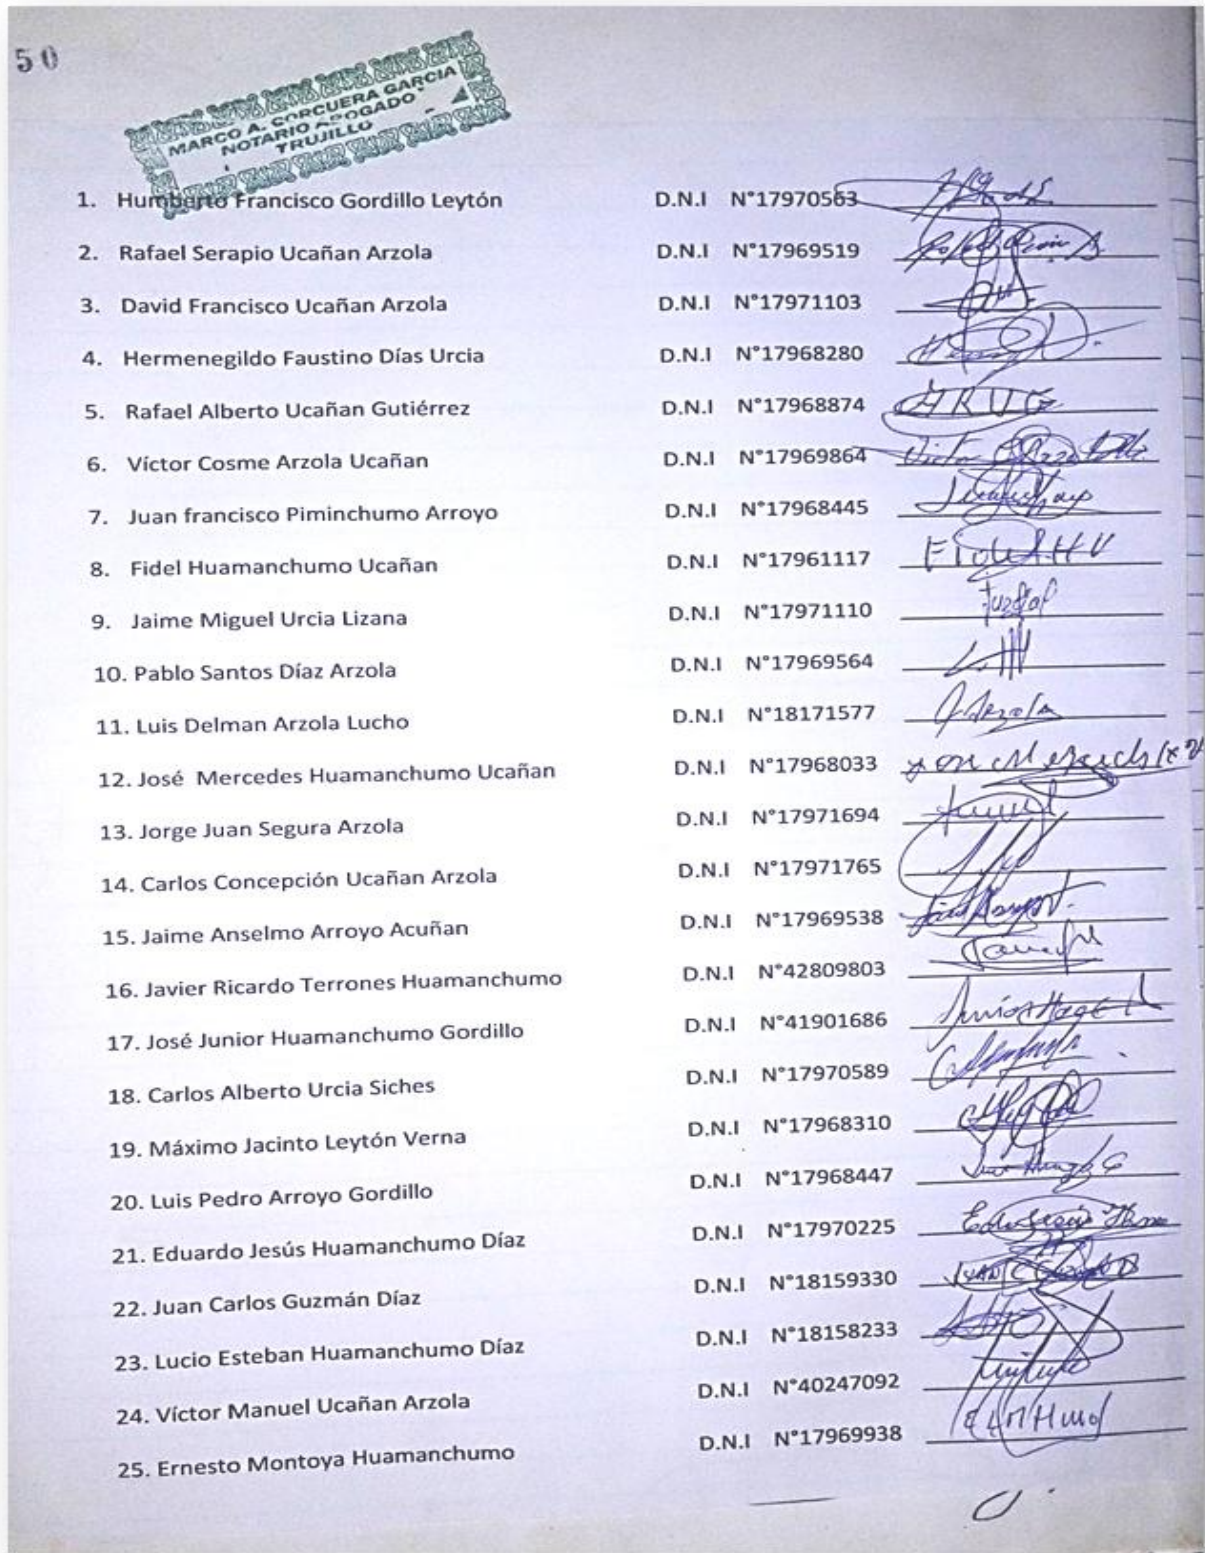 50
MARCO A. CORCUERA GARCIA
NOTARIO ABOGADO
TRUJILLO
1. Humberto Francisco Gordillo Leytón D.N.I N°17970563
2. Rafael Serapio Ucañan Arzola D.N.I N°17969519
3. David Francisco Ucañan Arzola D.N.I N°17971103
4. Hermenegildo Faustino Días Urcia D.N.I N°17968280
5. Rafael Alberto Ucañan Gutiérrez D.N.I N°17968874
6. Víctor Cosme Arzola Ucañan D.N.I N°17969864
7. Juan francisco Piminchumo Arroyo D.N.I N°17968445
8. Fidel Huamanchumo Ucañan D.N.I N°17961117 Fidel H U
9. Jaime Miguel Urcia Lizana D.N.I N°17971110
10. Pablo Santos Díaz Arzola D.N.I N°17969564
11. Luis Delman Arzola Lucho D.N.I N°18171577
12. José Mercedes Huamanchumo Ucañan D.N.I N°17968033
13. Jorge Juan Segura Arzola D.N.I N°17971694
14. Carlos Concepción Ucañan Arzola D.N.I N°17971765
15. Jaime Anselmo Arroyo Acuñan D.N.I N°17969538
16. Javier Ricardo Terrones Huamanchumo D.N.I N°42809803
17. José Junior Huamanchumo Gordillo D.N.I N°41901686
18. Carlos Alberto Urcia Siches D.N.I N°17970589
19. Máximo Jacinto Leytón Verna D.N.I N°17968310
20. Luis Pedro Arroyo Gordillo D.N.I N°17968447
21. Eduardo Jesús Huamanchumo Díaz D.N.I N°17970225
22. Juan Carlos Guzmán Díaz D.N.I N°18159330
23. Lucio Esteban Huamanchumo Díaz D.N.I N°18158233
24. Víctor Manuel Ucañan Arzola D.N.I N°40247092
25. Ernesto Montoya Huamanchumo D.N.I N°17969938